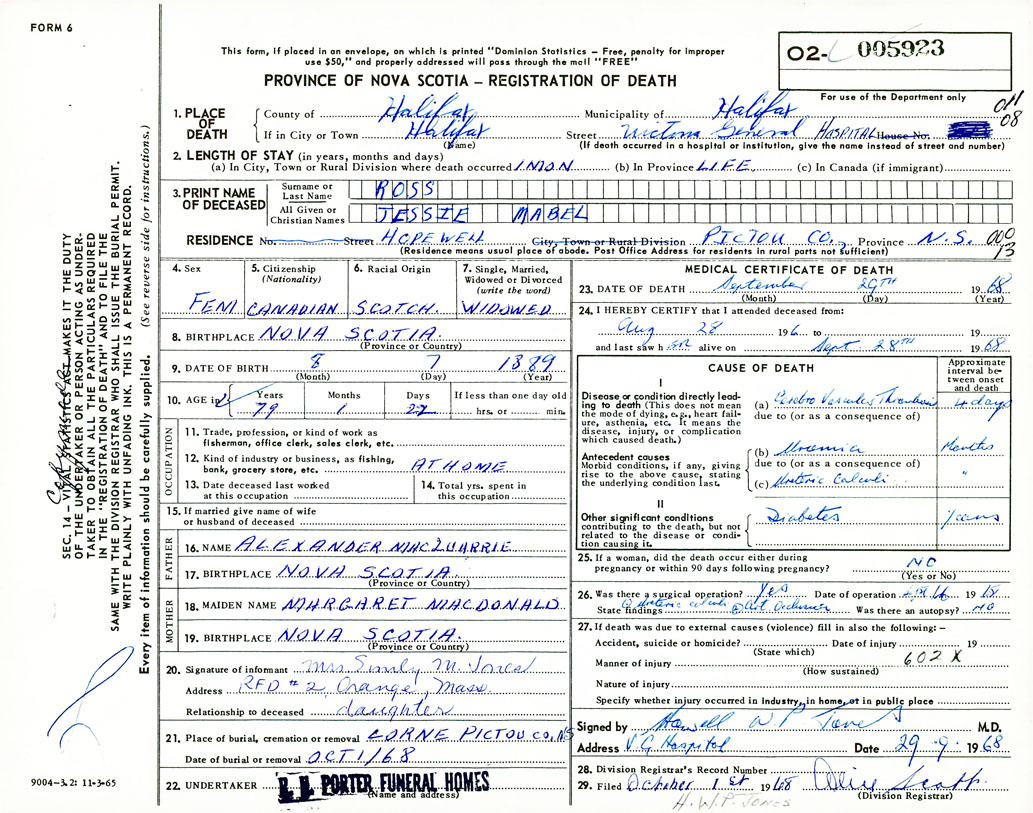 FORM 6
This form, if placed in an envelope, on which is printed "Dominion Statistics – Free, penalty for improper
use $50," and properly addressed will pass through the mail "FREE"
PROVINCE OF NOVA SCOTIA – REGISTRATION OF DEATH
O2- 005923
For use of the Department only
011
08
1. PLACE OF DEATH
County of Halifax Municipality of Halifax
If in City or Town Halifax Street Victoria General HOSPITAL House No.
(Name) (If death occurred in a hospital or institution, give the name instead of street and number)
2. LENGTH OF STAY (in years, months and days)
(a) In City, Town or Rural Division where death occurred 1 MON (b) In Province LIFE (c) In Canada (if immigrant)
3. PRINT NAME OF DECEASED
Surname or Last Name ROSS
All Given or Christian Names JESSIE MABEL
RESIDENCE No. Street HOPEWELL City, Town or Rural Division PICTOU CO., Province N.S. 000
13
(Residence means usual place of abode. Post Office Address for residents in rural parts not sufficient)
4. Sex FEM
5. Citizenship (Nationality) CANADIAN
6. Racial Origin SCOTCH.
7. Single, Married, Widowed or Divorced (write the word) WIDOWED
8. BIRTHPLACE NOVA SCOTIA.
(Province or Country)
9. DATE OF BIRTH 8 7 1889
(Month) (Day) (Year)
10. AGE in Years Months Days If less than one day old
79 1 22 hrs. or min.
OCCUPATION
11. Trade, profession, or kind of work as
fisherman, office clerk, sales clerk, etc.
12. Kind of industry or business, as fishing,
bank, grocery store, etc. AT HOME
13. Date deceased last worked at this occupation
14. Total yrs. spent in this occupation
15. If married give name of wife
or husband of deceased
FATHER
16. NAME ALEXANDER MACQUARRIE
17. BIRTHPLACE NOVA SCOTIA.
(Province or Country)
MOTHER
18. MAIDEN NAME MARGARET MACDONALD
19. BIRTHPLACE NOVA SCOTIA.
(Province or Country)
20. Signature of informant Mrs. M. Jones
Address RFD #2, Orange, Mass.
Relationship to deceased daughter
21. Place of burial, cremation or removal LORNE PICTOU CO, NS
Date of burial or removal OCT 1/68
22. UNDERTAKER PORTER FUNERAL HOMES
(Name and address)
MEDICAL CERTIFICATE OF DEATH
23. DATE OF DEATH September 29TH 1968
(Month) (Day) (Year)
24. I HEREBY CERTIFY that I attended deceased from:
Aug 28 196 to 19
and last saw h er alive on Sept. 28TH 1968
CAUSE OF DEATH
Approximate interval between onset and death
I
Disease or condition directly leading to death (This does not mean the mode of dying, e.g., heart failure, asthenia, etc. It means the disease, injury, or complication which caused death.)
(a) Cerebro Vascular Thrombosis 4 days
due to (or as a consequence of)
Antecedent causes
Morbid conditions, if any, giving rise to the above cause, stating the underlying condition last.
(b) Uraemia Months
due to (or as a consequence of)
(c) Ureteric Calculi "
II
Other significant conditions
contributing to the death, but not related to the disease or condition causing it.
Diabetes years
25. If a woman, did the death occur either during
pregnancy or within 90 days following pregnancy? NO
(Yes or No)
26. Was there a surgical operation? Yes Date of operation 19 68
State findings Ureteric calculi Was there an autopsy? NO
27. If death was due to external causes (violence) fill in also the following: –
Accident, suicide or homicide? Date of injury 19
(State which)
Manner of injury 602 X
(How sustained)
Nature of injury
Specify whether injury occurred in Industry, in home, or in public place
Signed by Howell W P Jones M.D.
Address V.G Hospital Date 29 · 9 · 1968
28. Division Registrar's Record Number
29. Filed October 1st 1968 Alice Scott
(Division Registrar)
H.W.P. JONES
SEC. 14 – VITAL STATISTICS ACT MAKES IT THE DUTY
OF THE UNDERTAKER OR PERSON ACTING AS UNDER-
TAKER TO OBTAIN ALL THE PARTICULARS REQUIRED
IN THE "REGISTRATION OF DEATH" AND TO FILE THE
SAME WITH THE DIVISION REGISTRAR WHO SHALL ISSUE THE BURIAL PERMIT.
WRITE PLAINLY WITH UNFADING INK. THIS IS A PERMANENT RECORD.
Every item of information should be carefully supplied. (See reverse side for instructions.)
9004–3.2: 11-3-65